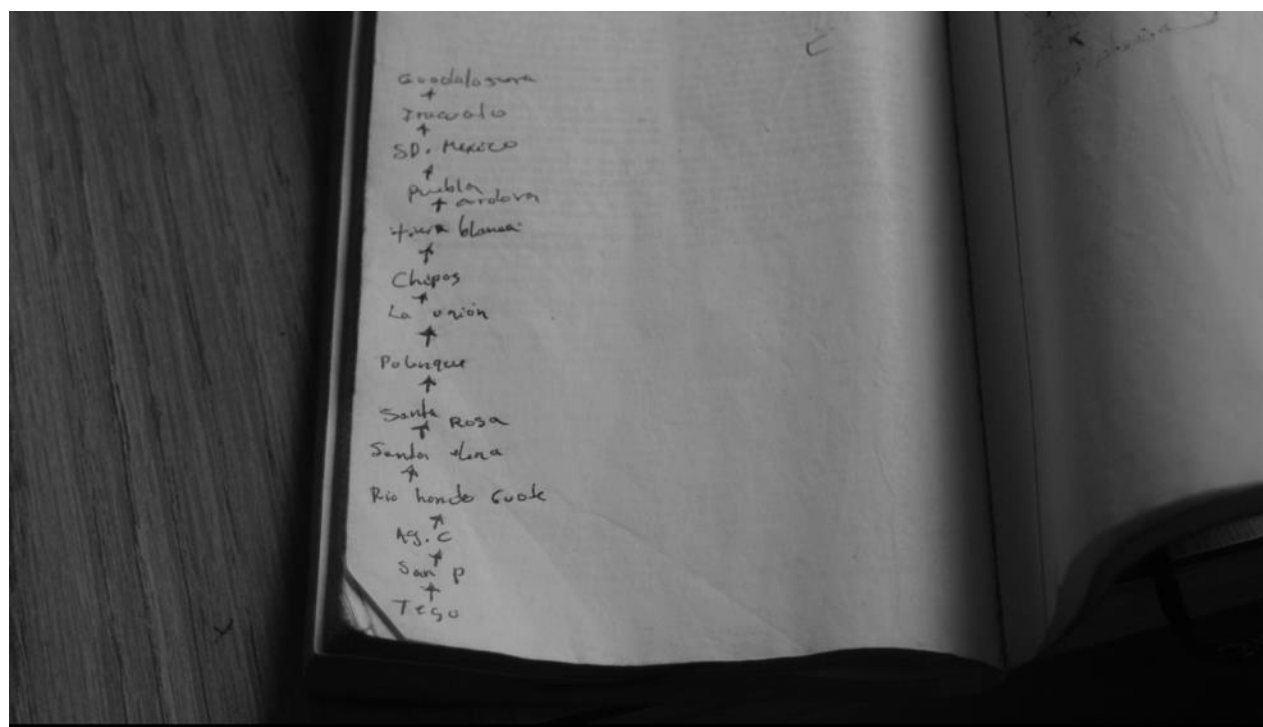 Guadalagura
Irapuato
SD. Mexico
Puebla
blanca
Chipas
La unión
Polenque
Santa
Rosa
Santa elena
Rio hondo Guate
Ag. C
San P
Tego